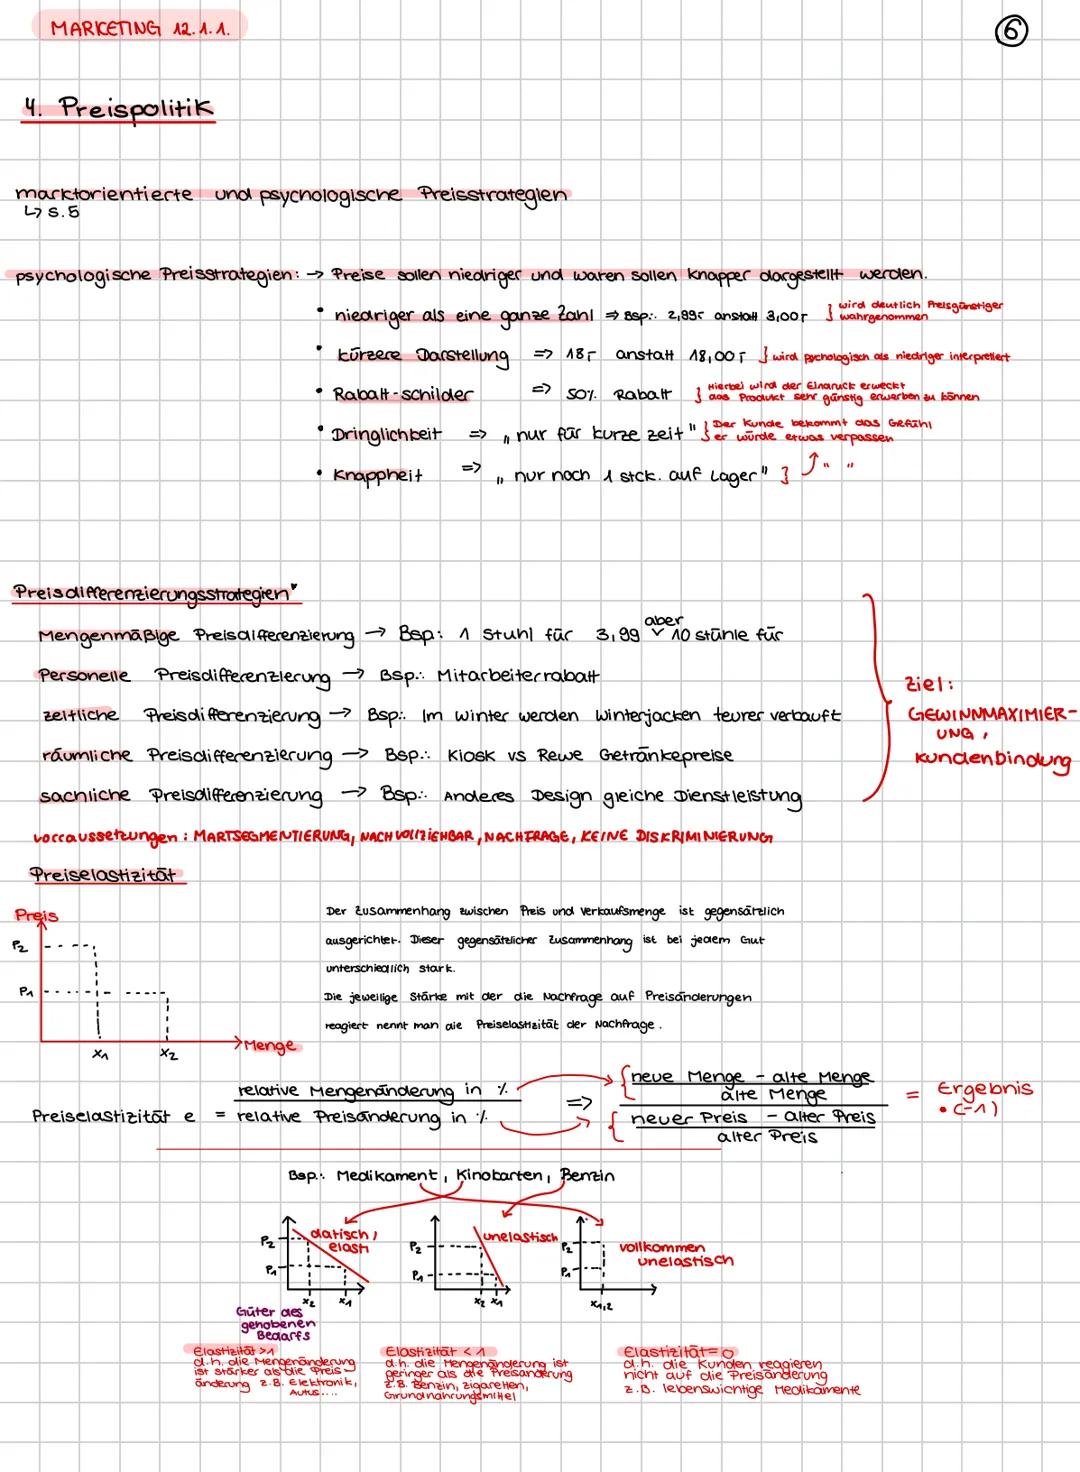 MARKETING 12.1.1.
6
4. Preispolitik
marktorientierte und psychologische Preisstrategien
↳ S.5
psychologische Preisstrategien: → Preise sollen niedriger und waren sollen knapper dargestellt werden.
• niedriger als eine ganze Zahl ⇒ Bsp.: 2,99,- anstatt 3,00,- } wird deutlich Preisgünstiger
wahrgenommen
• kürzere Darstellung => 18,- anstatt 18,00,- } wird pychologisch als niedriger interpretiert
• Rabatt-schilder => 50% Rabatt } Hierbei wird der Eindruck erweckt
das Produkt sehr günstig erwerben zu können
• Dringlichkeit => „nur für kurze zeit" } Der Kunde bekommt das Gefühl
er würde etwas verpassen
• Knappheit => „nur noch 1 stck. auf Lager" } ⤴ " "
Preisdifferenzierungsstrategien
Mengenmäßige Preisdifferenzierung → Bsp: 1 Stuhl für 3,99 aber 10 stühle für
Personelle Preisdifferenzierung → Bsp.: Mitarbeiterrabatt
zeitliche Preisdifferenzierung → Bsp.: Im Winter werden Winterjacken teurer verkauft
räumliche Preisdifferenzierung → Bsp.: Kiosk vs Rewe Getränkepreise
sachliche Preisdifferenzierung → Bsp.: Anderes Design gleiche Dienstleistung
Ziel:
GEWINNMAXIMIER-
UNG,
Kundenbindung
vorraussetzungen: MARTSEGMENTIERUNG, NACHVOLLZIEHBAR, NACHFRAGE, KEINE DISKRIMINIERUNG
Preiselastizität
Preis
P2
P1
x1 x2
Menge
Der Zusammenhang zwischen Preis und Verkaufsmenge ist gegensätzlich
ausgerichtet. Dieser gegensätzlicher Zusammenhang ist bei jedem Gut
unterschiedlich stark.
Die jeweilige Stärke mit der die Nachfrage auf Preisänderungen
reagiert nennt man die Preiselastizität der Nachfrage.
Preiselastizität e = relative Mengenänderung in %
relative Preisänderung in %
=> neue Menge - alte Menge
alte Menge
neuer Preis - alter Preis
alter Preis
= Ergebnis
• (-1)
Bsp.: Medikament, Kinokarten, Benzin
P2
P1
x2 x1
elasti
Güter des
gehobenen
Bedarfs
P2
P1
x2 x1
unelastisch
P2
P1
x1,2
vollkommen
unelastisch
Elastizität >1
d.h. die Mengenänderung
ist stärker als die Preis-
änderung z.B. Elektronik,
Autus....
Elastizität < 1
d.h. die Mengenänderung ist
geringer als die Preisänderung
z.B. Benzin, Zigaretten,
Grundnahrungsmittel
Elastizität = 0
d.h. die Kunden reagieren
nicht auf die Preisänderung
z.B. lebenswichtige Medikamente